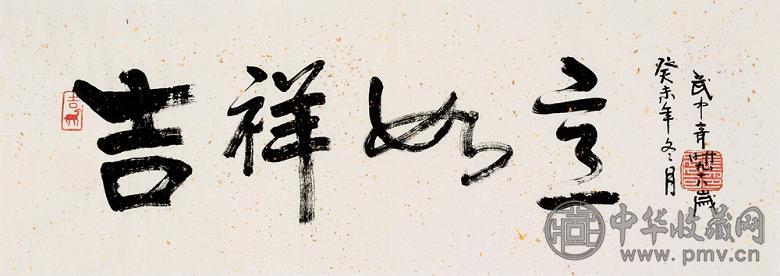 吉
吉祥如意
癸未年冬月
武中奇
歲
中华收藏网
www.pmv.cn